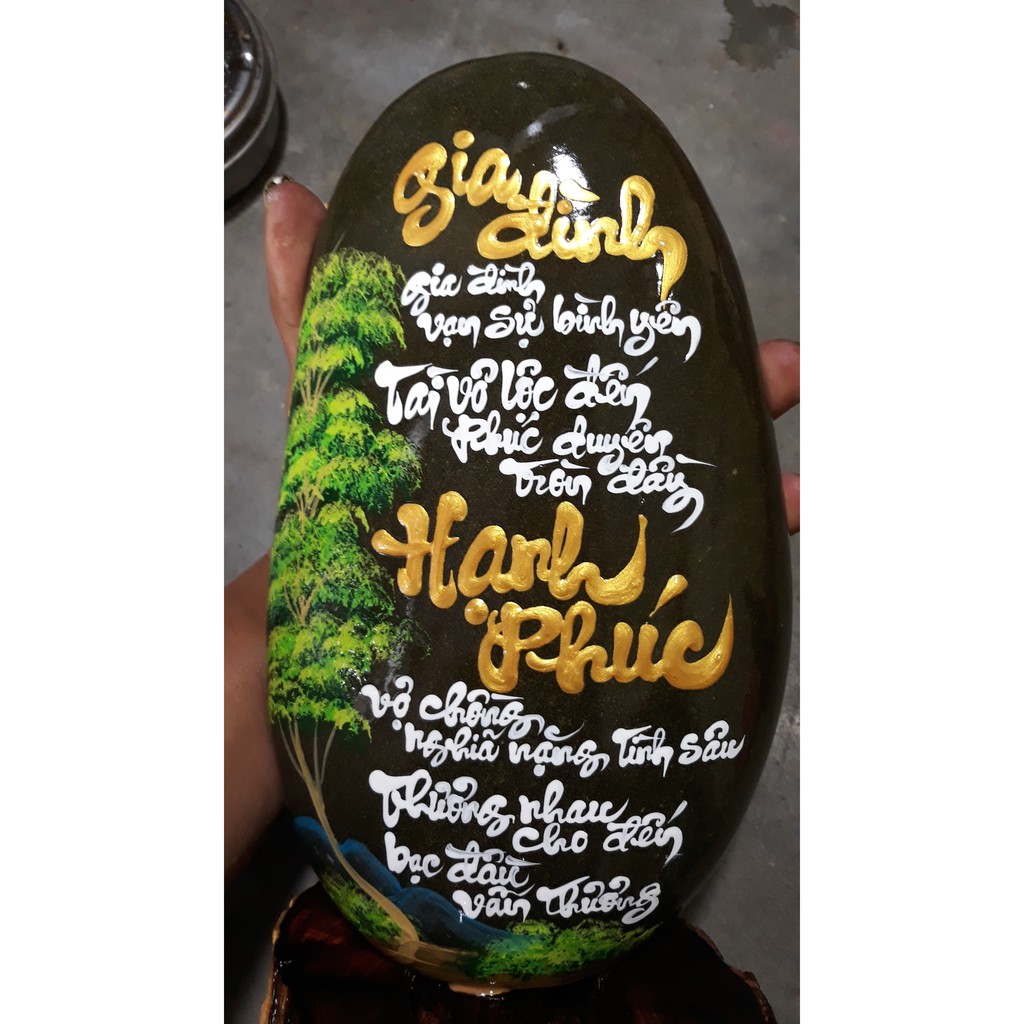 gia
đình
gia đình
vạn sự bình yên
Tài vô lộc đến
Phúc duyên
Tròn đầy
Hạnh
Phúc
vợ chồng
nghiã nặng Tình sâu
Thương nhau
cho đến
bạc đầu
vẫn Thương